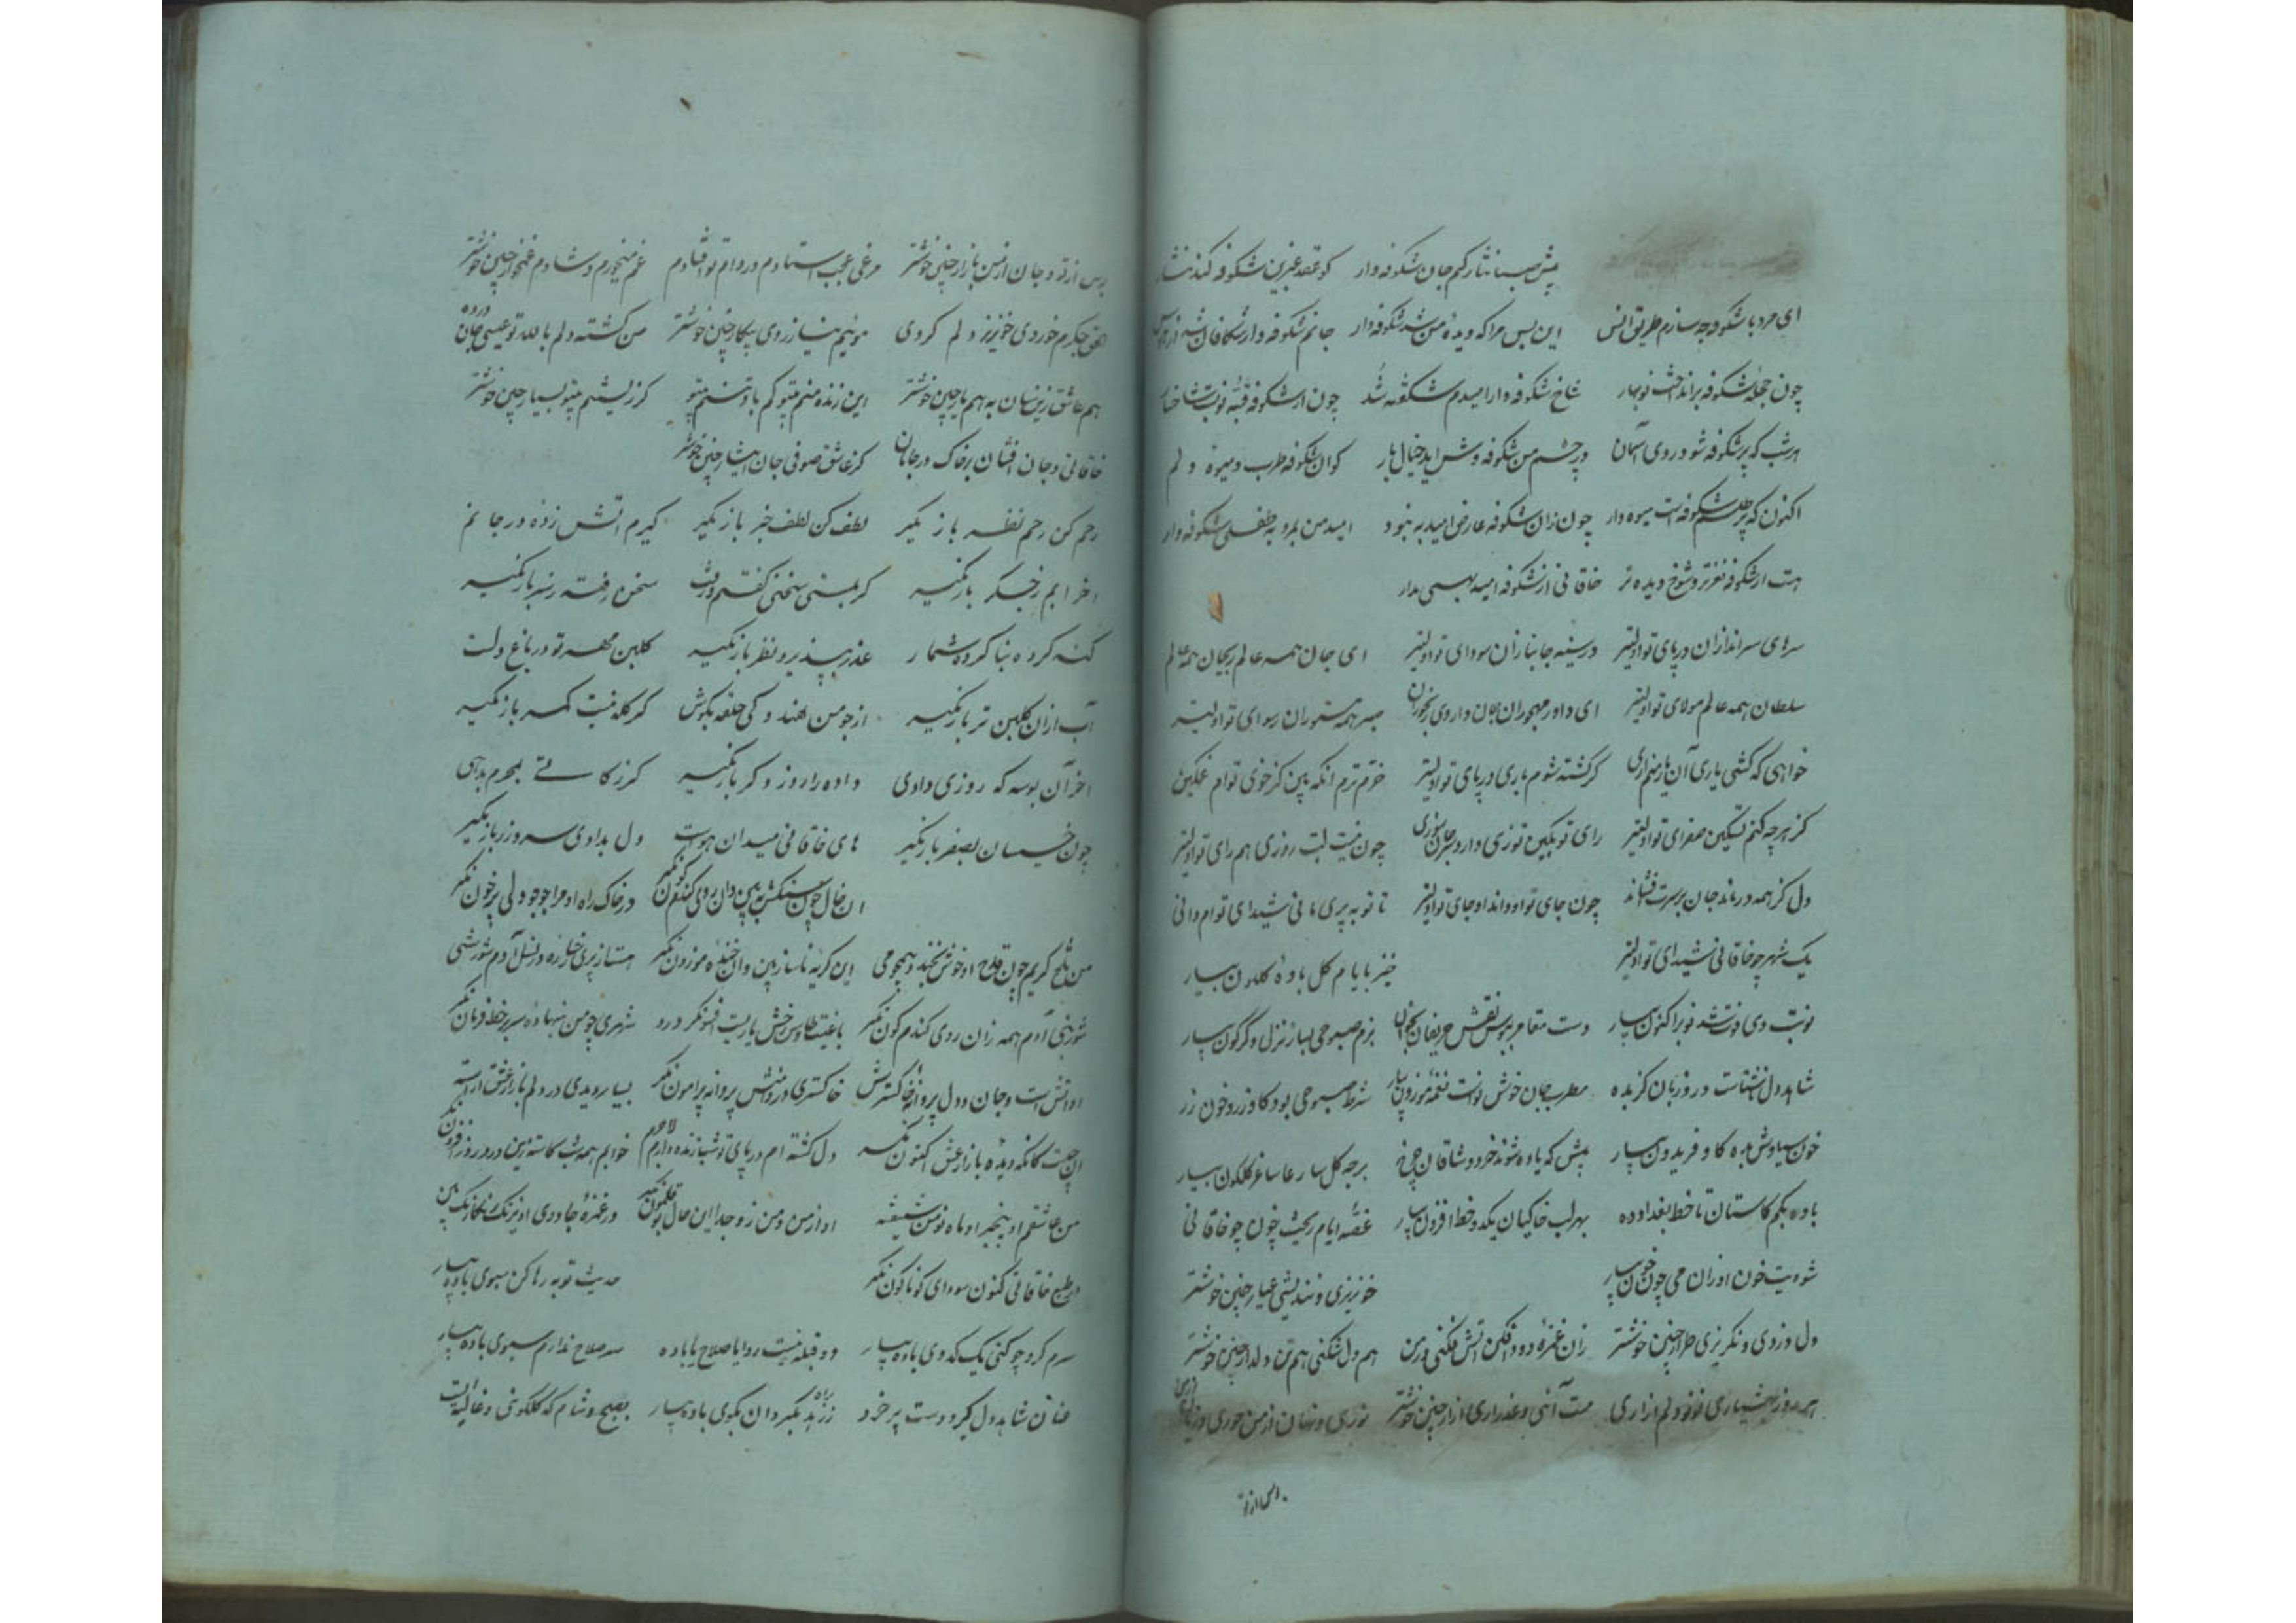 پیش صبا نثار کنم جان شکوفه وار کو عقد عنبرین شکوفه کند نثار
ای مرد با شکوفه چه سازم طریق انس این بس مرا که دیده من شد شکوفه دار جانم شکوفه وار شکافان شد از هوس
چون حجله شکوفه برانداخت نوبهار شاخ شکوفه وار امیدم شکفته شد چون از شکوفه قبه نو بست شاخسار
هر شب که پر شکوفه شود روی آسمان در چشم من شکوفه وش اید خیال یار کوان شکوفه طرب و میوه دلم
اکنون که پر طلسم شکوفه است میوه دار چون زان شکوفه عارض امید به نبود امید من بمرد به طفلی شکوفه وار
هست از شکوفه نغزتر و شوخ دیده تر خاقانی از شکوفه امید بهی مدار
سرهای سراندازان در پای تو اولیتر در سینه جانبازان سودای تو اولیتر ای جان همه عالم ریحان همه عالم
سلطان همه عالم مولای تو اولیتر ای داور مهجوران جان داروی رنجوران صبر همه مستوران رسوای تو اولیتر
خواهی که کشی یاری آن یار منم اری گر کشته شوم باری در پای تو اولیتر خرم ترم انکه بین کز خوی توام غمگین
کز هرچه کنم تسکین صفرای تو اولیتر رای تو بکین توزی دارد سر جانسوزی چون نیست لبت روزی هم رای تو اولیتر
دل کز همه درماند جان بر سرت افشاند چون جای تو او داند او جای تو اولیتر تا تو به پری مانی شیدای توام دانی
یک شهر چو خاقانی شیدای تو اولیتر خیز بایام گل باده گلگون بیار
نوبت دی فوت شد نوبر اکنون بیار دست مقامر ببوس نقش حریفان بخوان بزم صبوحی بساز نزل دگرگون بیار
شاهد دل ناشتاست درد زبان گز بده مطرب جان خوش نواست نغمه موزون بیار شرط صبوحی بود گاو زر و خون رز
خون سیاوش بده گاو فریدون بیار پیش که یاوه شوند خرد وشاقان چرخ بر چه گل
باده بکم کاستان تا خط بغداد ده بهر لب خاکیان یکدو خط افزون بیار غصه ایام ریخت خون چو خاقانی
شو دیت خون او زان می چون خون بیار خونریزی و نندیشی عیار چنین خوشتر
دل دزدی و نگریزی طرار چنین خوشتر زان غمزه دودافکن آتش فکنی در من هم دل شکنی هم تن دلدار چنین خوشتر
هر روز بهشیاری نو نو دلم آزاری مست آئی و عذر آری آزار چنین خوشتر نوری و نهان از من حوری و رمان از من
بوس از تو
بوس از تو و جان از من بازار چنین خوشتر مرغی عجب استادم در دام تو افتادم غم میخورم و شادم غمخوار چنین خوشتر
الحق جگرم خوردی خونریز دلم کردی موئیم نیازردی پیکار چنین خوشتر من کشته دلم بالله تو عیسی جان
هم عاشق ازین سان به هم یار چنین خوشتر این زنده منم بیتو گم باد تنم بیتو کز زیستنم بیتو بسیار چنین خوشتر
خاقانی و جان افشان بر خاک در جانان کز عاشق صوفی جان ایثار چنین خوشتر
رحم کن رحم نظر باز مگیر لطف کن لطف خبر باز مگیر گیرم اتش زده در جانم
اخر ابم ز جگر باز مگیر گر بمستی سخنی گفتم رفت سخن رفته ز سر باز مگیر
گنه کرده بنا کرده شمار عذر بپذیر و نظر باز مگیر گلبن مهر تو در باغ دلست
آب ازان گلبن تر باز مگیر از چو من هندوکی حلقه بگوش گر کله نیست کمر باز مگیر
اخر آن بوسه که روزی دادی داده را روز دگر باز مگیر گر زکاتی بمحرم بدهی
چون خسیسان بصفر باز مگیر های خاقانی میدان هواست دل بدادی سر و زر باز مگیر
ان خال چو سنگش ببین وان روی گندم گون نگر در خاک راه او مرا جوجو دلی پرخون نگر
من تلخ گریم چون قدح او خوش بخندد همچو می این گریه ناساز بین وان خنده موزون نگر هستار پری رخساره در نسل آدم شورشی
شور بنی آدم همه زان روی گندم گون نگر باغیست طاوس رخش ماریست افسونگر درو شهری چو من بنهاده سر بر خط فرمان نگر
او آتش است و جان و دل پروانه خاکسترش خاکستری در دامنش پروانه پیرامون نگر بسیار دیدی در دلم بازار عشق آراسته
ان چیست کانگه دیده بازار عشق اکنون نگر دل کشته ام در پای تو شب زنده دارم لاجرم خوابم همه شب کاسته زین درد روز افزون نگر
من عاشقم او بیخبر او ماه نو من شیفته او از من و من زو جدا این حال بوقلمون نگر در غمزه جادوی او نیرنگ رنگارنگ بین
در طبع خاقانی کنون سودای گوناگون نگر حدیث توبه رها کن سبوی باده بیار
سرم گرو چو کنی یک کدوی باده بیار دو قبله نیست روا یا صلاح یا باده سر صلاح ندارم سبوی باده بیار
عنان شاهد دل گیر و دست پیر خرد ز راه زهد بگردان بکوی باده بیار بصبح و شام که گلگونی و غالیه است